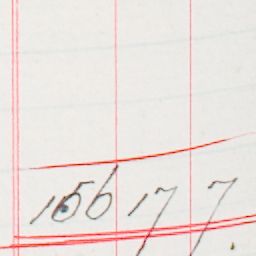 156 17 7